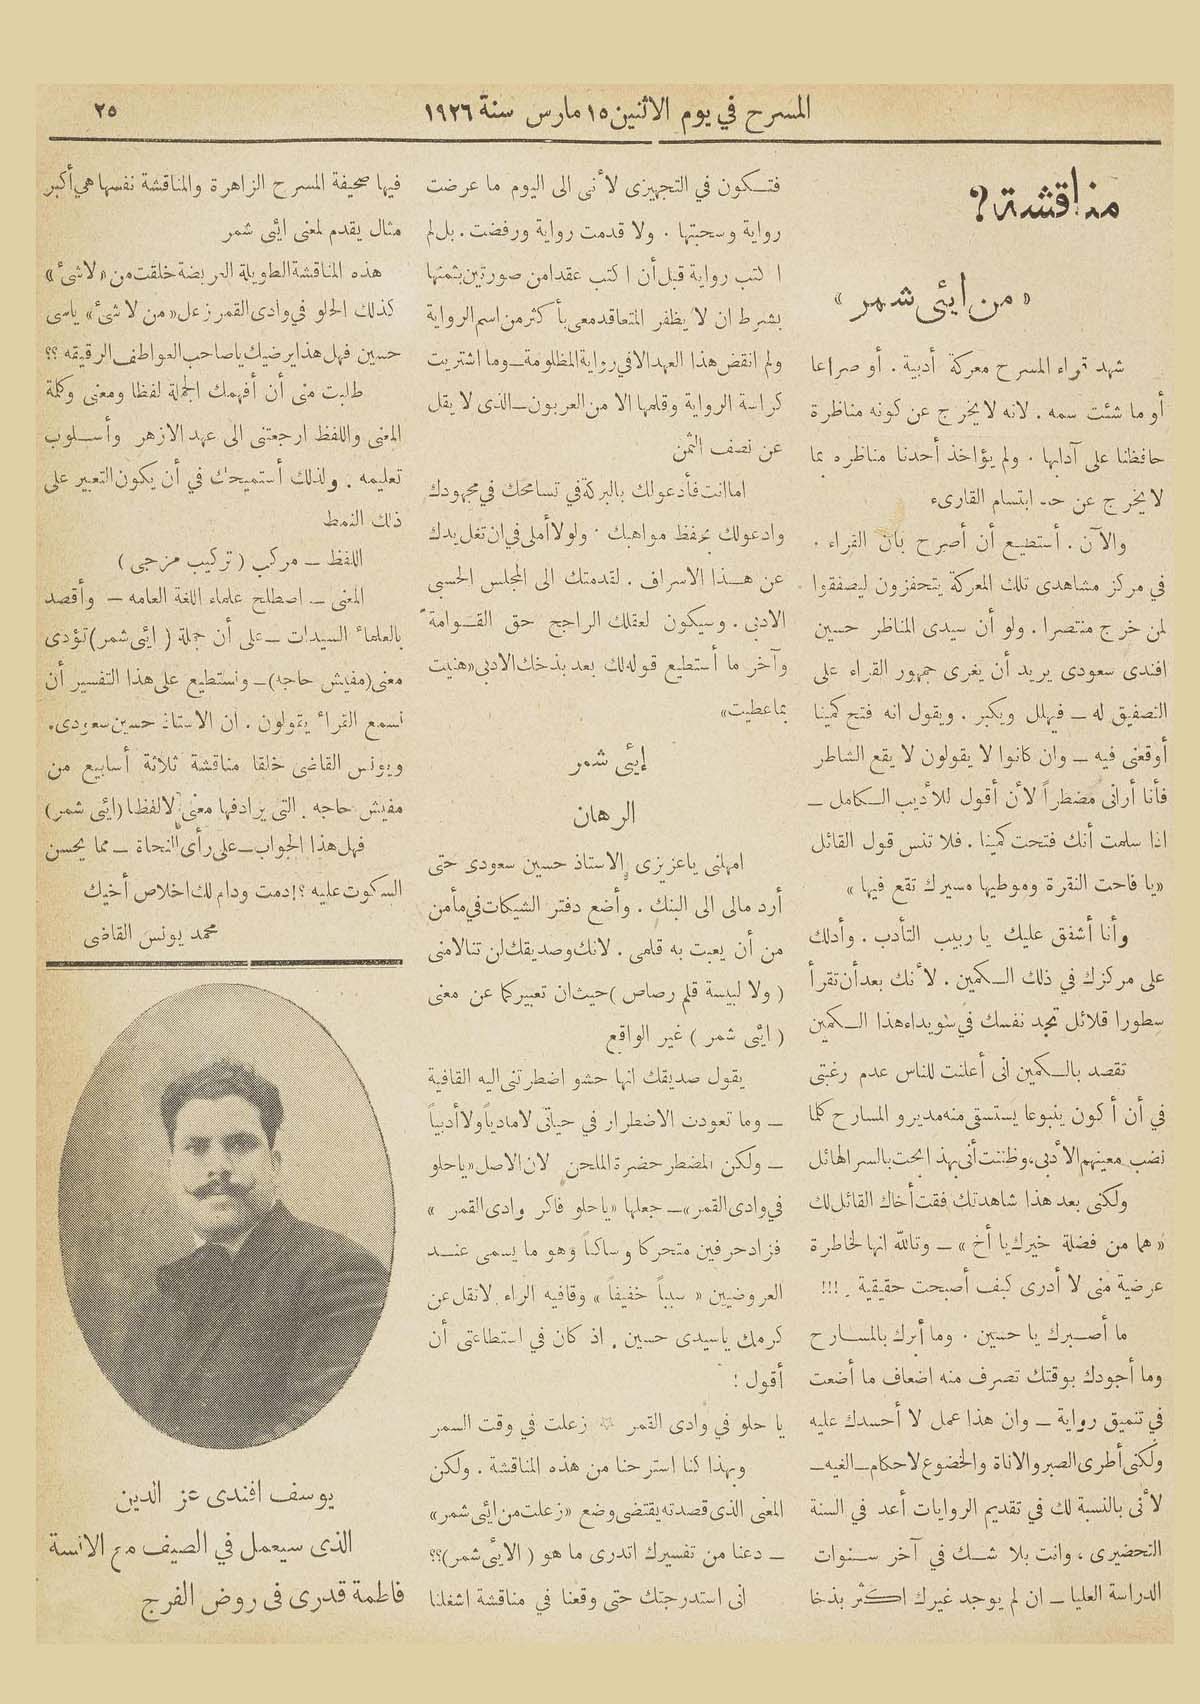 المسرح في يوم الاثنين ١٥ مارس سنة ١٩٢٦
٢٥
مناقشة؟
« من ايئى شمر »
شهد قراء المسرح معركة أدبية . أو صراعا
أو ما شئت سمه . لانه لا يخرج عن كونه مناظرة
حافظنا على آدابها . ولم يؤاخذ أحدنا مناظره بما
لا يخرج عن حد ابتسام القارىء
والآن . أستطيع أن أصرح بأن القراء .
في مركز مشاهدى تلك المعركة يتحفزون ليصفقوا
لمن خرج منتصرا . ولو أن سيدى المناظر حسين
افندى سعودى يريد أن يغرى جمهور القراء على
التصفيق له ــ فيهلل ويكبر . ويقول انه فتح كمينا
أوقعنى فيه ــ وان كانوا لا يقولون لا يقع الشاطر
فأنا أرانى مضطراً لأن أقول للأديب الكامل ــ
اذا سلمت أنك فتحت كمينا . فلا تنس قول القائل
« يا فاحت النقرة وموطيها مسيرك تقع فيها »
وأنا أشفق عليك يا ربيب التأدب . وأدلك
على مركزك في ذلك الكمين . لأنك بعد أن تقرأ
سطورا قلائل تجد نفسك في سويداء هذا الكمين
تقصد بالكمين انى أعلنت للناس عدم رغبتى
في أن أكون ينبوعا يستسقى منه مديرو المسارح كلما
نضب معينهم الأدبى ، وظننت أنى بهذا بحت بالسر الهائل
ولكنى بعد هذا شاهدتك فقت أخاك القائل لك
« هما من فضلة خيرك يا أخ » ــ وتالله انها لخاطرة
عرضية منى لا أدرى كيف أصبحت حقيقية . !!!
ما أصبرك يا حسين . وما أبرك بالمسارح
وما أجودك بوقتك تصرف منه اضعاف ما أضعت
في تنميق رواية ــ وان هذا عمل لا أحسدك عليه
ولكنى أطرى الصبر والاناة والخضوع لاحكام ــ الغيه ــ
لأنى بالنسبة لك في تقديم الروايات أعد في السنة
التحضيرى ، وانت بلا شك في آخر سنوات
الدراسة العليا ــ ان لم يوجد غيرك اكثر بذخا
فتكون في التجهيزى لأنى الى اليوم ما عرضت
رواية وسحبتها . ولا قدمت رواية ورفضت . بل لم
اكتب رواية قبل أن اكتب عقدا من صورتين بثمنها
بشرط ان لا يظفر المتعاقد معى بأكثر من اسم الرواية
ولم انقض هذا العهد الا في رواية المظلومة ــ وما اشتريت
كراسة الرواية وقلمها الا من العربون ــ الذى لا يقل
عن نصف الثمن
اما انت فأدعو لك بالبركة في تسامحك في مجهودك
وادعو لك بحفظ مواهبك . ولولا أملى في ان تغل يدك
عن هذا الاسراف . لقدمتك الى المجلس الحسبى
الادبى . وسيكون لعقلك الراجح حق القوامة
وآخر ما أستطيع قوله لك بعد بذخك الادبى « هنيت
بما عطيت »
إيئى شمر
الرهان
امهلنى يا عزيزى الاستاذ حسين سعودى حتى
أرد مالى الى البنك . وأضع دفتر الشيكات في مأمن
من أن يعبث به قلمى . لانك وصديقك لن تنالا منى
( ولا لبيسة قلم رصاص ) حيث ان تعبيركما عن معنى
( ايئى شمر ) غير الواقع
يقول صديقك انها حشو اضطرتنى اليه القافية
ــ وما تعودت الاضطرار في حياتى لا مادياً ولا أدبياً
ــ ولكن المضطر حضرة الملحن لان الاصل « يا حلو
في وادى القمر » ــ جعلها « يا حلو فاكر وادى القمر »
فزاد حرفين متحركا وساكناً وهو ما يسمى عند
العروضيين « سبباً خفيفاً » وقافيه الراء . لا تقل عن
كرمك يا سيدى حسين . اذ كان في استطاعتى أن
أقول !
يا حلو في وادى القمر ☆ زعلت في وقت السمر
وبهذا كنا استرحنا من هذه المناقشة . ولكن
المعنى الذى قصدته يقتضى وضع « زعلت من ايئى شمر »
ــ دعنا من تفسيرك اتدرى ما هو ( الايئى شمر ) ؟؟
انى استدرجتك حتى وقعنا في مناقشة اشغلنا
فيها صحيفة المسرح الزاهرة والمناقشة نفسها هي أكبر
مثال يقدم لمعنى ايئى شمر
هذه المناقشة الطويلة العريضة خلقت من « لا شئ »
كذلك الحلو في وادى القمر زعل « من لا شئ » ياسى
حسين فهل هذا يرضيك يا صاحب العواطف الرقيقه ؟؟
طلبت منى أن أفهمك الجملة لفظا ومعنى وكلمة
المعنى واللفظ ارجعتنى الى عهد الازهر وأسلوب
تعليمه . ولذلك أستميحك في أن يكون التعبير على
ذلك النمط
اللفظ ــ مركب ( تركيب مزجى )
المعنى ــ اصطلح علماء اللغة العامه ــ وأقصد
بالعلماء السيدات ــ على أن جملة ( ايئى شمر ) تؤدى
معنى ( مفيش حاجه ) ــ ونستطيع على هذا التفسير أن
نسمع القراء يقولون . ان الاستاذ حسين سعودى .
ويونس القاضى خلقا مناقشة ثلاثة أسابيع من
مفيش حاجه . التى يرادفها معنى لا لفظا ( ايئى شمر )
فهل هذا الجواب ــ على رأى النحاة ــ مما يحسن
السكوت عليه ؟! دمت ودام لك اخلاص أخيك
محمد يونس القاضى
يوسف افندى عز الدين
الذى سيعمل في الصيف مع الانسة
فاطمة قدرى في روض الفرج